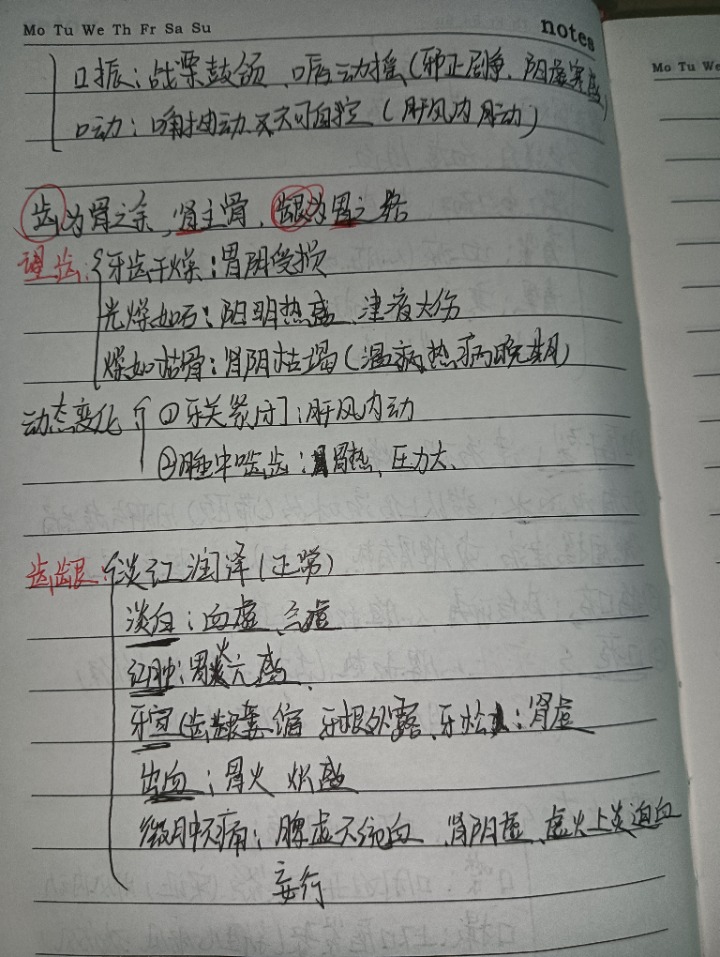 Mo Tu We Th Fr Sa Su
notes
Mo Tu We
口振：战栗鼓颌、口唇动摇（邪正剧争，阳虚寒盛）
口动：嘴抽动又不可自控（肝风内动）
齿为骨之余，肾主骨，龈为胃之络
望齿：牙齿干燥：胃阴受损
光燥如石：阳明热盛、津液大伤
燥如枯骨：肾阴枯竭（温病，热病晚期）
动态变化 ①牙关紧闭：肝风内动
②睡中啮齿：胃热，压力大、
齿龈 淡红润泽（正常）
淡白：血虚、
红肿：胃火亢盛、
牙宣（齿龈萎缩 牙根外露、牙松：肾虚
出血：胃火炽盛
微肿不痛：脾虚不统血 肾阴虚、虚火上炎迫血
妄行